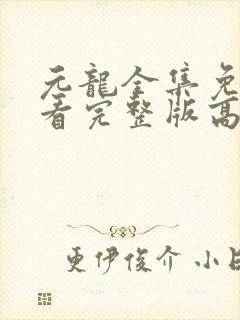 元龍全集免
看完整版高
更伊俊介 小日